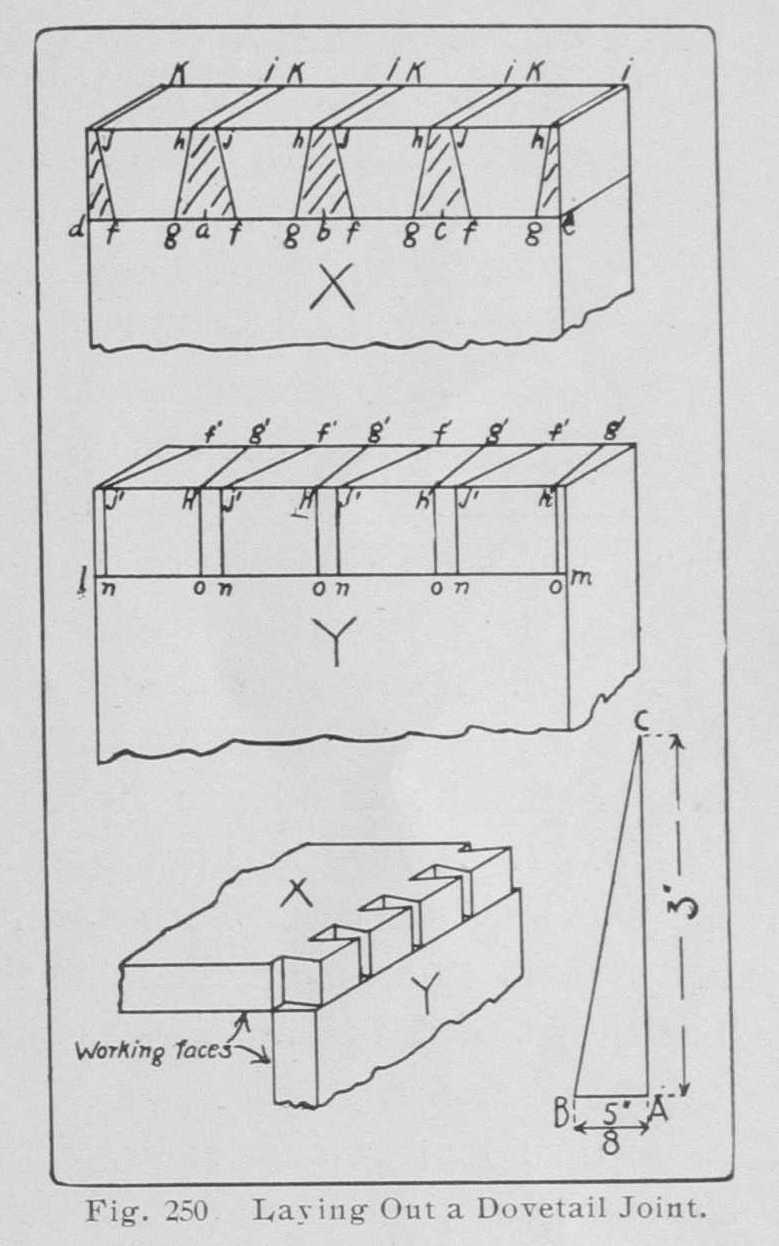 K i K i K i K i
J h j h J h J h
d f g a f g b f g c f g e
X
f' g' f' g' f' g' f' g'
J' H' J' H' J' h' J' h'
l n o n o n o n o m
Y
C
X
3"
Y
Working faces
B 5" A
8
Fig. 250 Laying Out a Dovetail Joint.